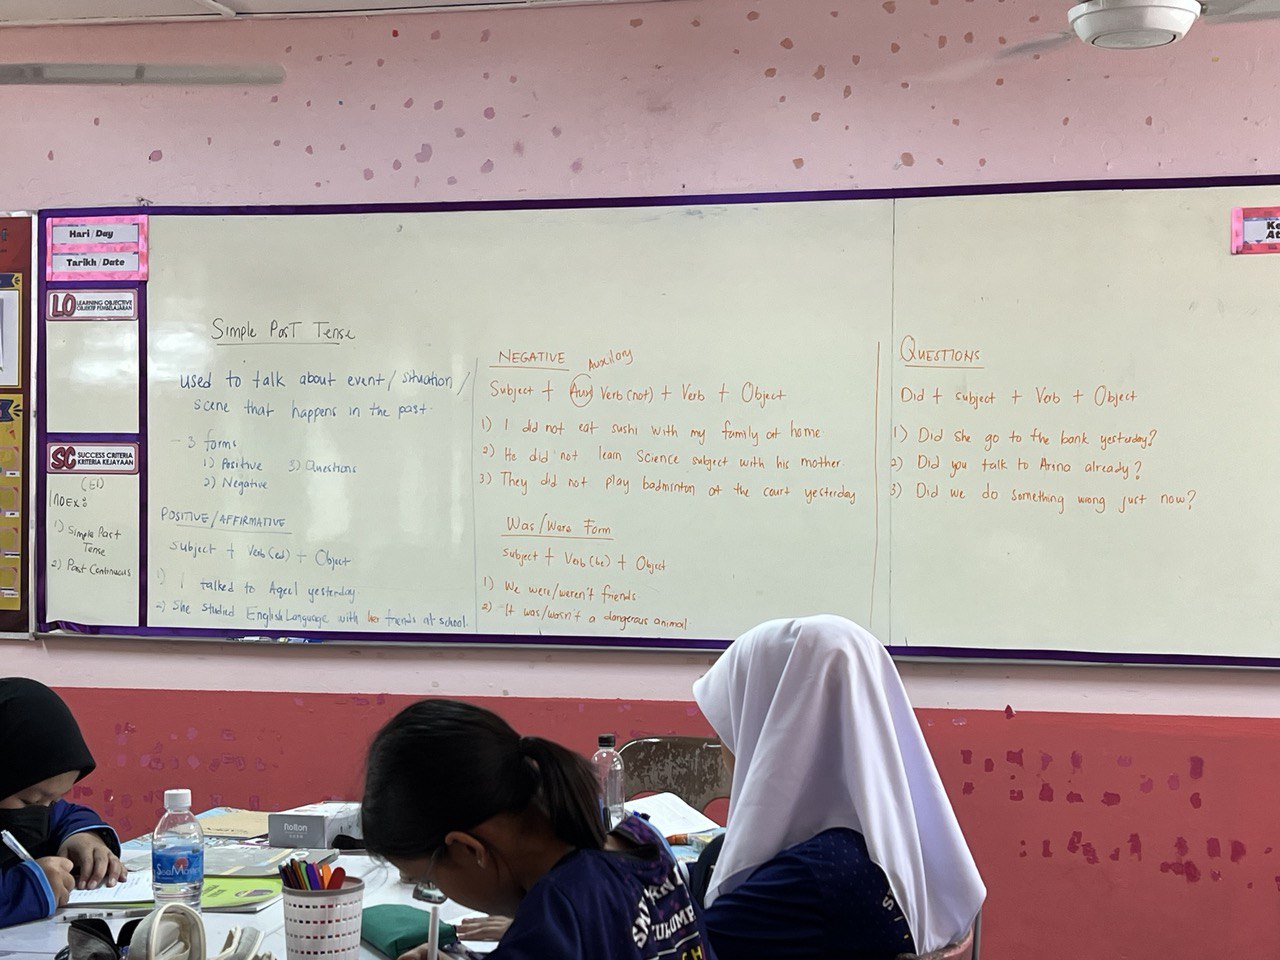 Hari/Day
Tarikh/Date
LO LEARNING OBJECTIVE
OBJEKTIF PEMBELAJARAN
SC SUCCESS CRITERIA
KRITERIA KEJAYAAN
(E1)
INDEX:
1) Simple Past
Tense
2) Past Continuous
Simple Past Tense
used to talk about event/situation/
scene that happens in the past.
- 3 forms
1) Positive 3) Questions
2) Negative
POSITIVE/AFFIRMATIVE
Subject + Verb(ed) + Object
1) I talked to Aqeel yesterday.
2) She studied English Language with her friends at school.
NEGATIVE
Auxilary
Subject + Aux Verb (not) + Verb + Object
1) I did not eat sushi with my family at home.
2) He did not learn Science subject with his mother.
3) They did not play badminton at the court yesterday
Was/Were Form
Subject + Verb(be) + Object
1) We were/weren't friends
2) It was/wasn't a dangerous animal
QUESTIONS
Did + subject + Verb + Object
1) Did she go to the bank yesterday?
2) Did you talk to Arina already?
3) Did we do something wrong just now?
Ke
At
flotton
SeaMaster